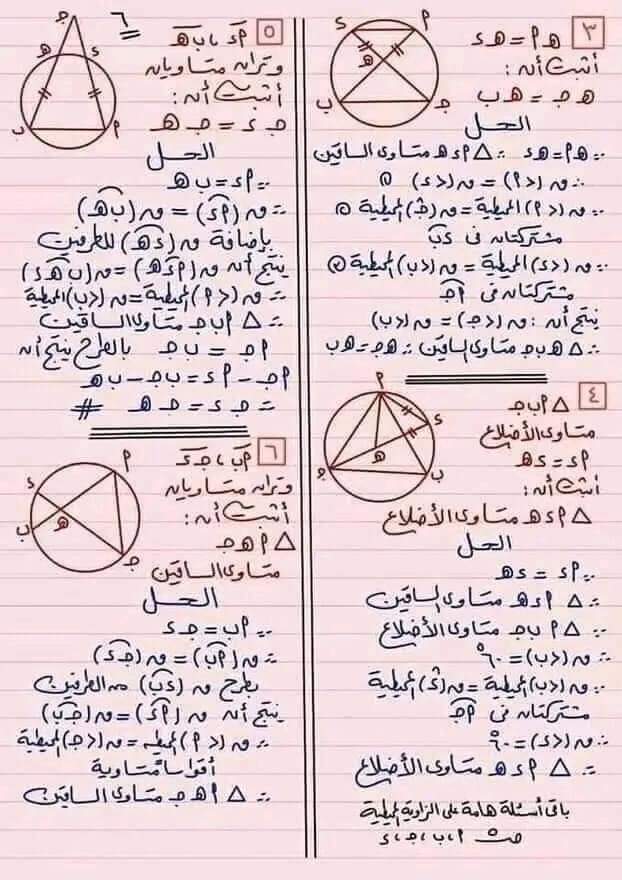 ٣
هـ م = هـ ء
أثبت أنه :
هـ جـ = هـ ب
الحل
∵ هـ م = هـ ء ∴ △ م ء هـ متساوى الساقين
∴ ق (د م) = ق (د ء) ①
∵ ق (د م) المحيطية = ق (جـ) المحيطية ②
مشتركتان فى ء ب
∵ ق (د ء) المحيطية = ق (د ب) المحيطية ③
مشتركتان م جـ
ينتج أنه : ق (د جـ) = ق (د ب)
∴ △ هـ ب جـ متساوى الساقين ∴ هـ جـ = هـ ب
٤
△ م ب جـ
متساوى الأضلاع
م ء = ء هـ
أثبت أنه :
△ م ء هـ متساوى الأضلاع
الحل
∵ م ء = ء هـ
∴ △ م ء هـ متساوى الساقين
∵ △ م ب جـ متساوى الأضلاع
∴ ق (د ب) = ٦٠°
∵ ق (د ب) المحيطية = ق (ء) المحيطية
مشتركتان فى م جـ
∴ ق (د ء) = ٦٠°
∴ △ م ء هـ متساوى الأضلاع
باقى أسئلة هامة على الزاوية المحيطية
م ، ب ، جـ ، ء
٦
٥
م ء ، ب هـ
وتران متساويان
أثبت أنه :
جـ ء = جـ هـ
الحل
∵ م ء = ب هـ
∴ ق (م ء) = ق (ب هـ)
بإضافة ق (ء هـ) للطرفين
ينتج أنه ق (م ء هـ) = ق (ب هـ ء)
∴ ق (د م) المحيطية = ق (د ب) المحيطية
∴ △ م ب جـ متساوى الساقين
م جـ = ب جـ بالطرح ينتج أنه
م جـ - م ء = ب جـ - ب هـ
∴ جـ ء = جـ هـ #
٦
م ب ، جـ ء
وتران متساويان
أثبت أنه :
△ م هـ جـ
متساوى الساقين
الحل
∵ م ب = جـ ء
∴ ق (م ب) = ق (جـ ء)
بطرح ق (ء ب) من الطرفين
ينتج أنه ق (م ء) = ق (جـ ب)
∴ ق (د م) المحيطيه = ق (د جـ) المحيطية
أقواسا متساوية
∴ △ م هـ جـ متساوى الساقين